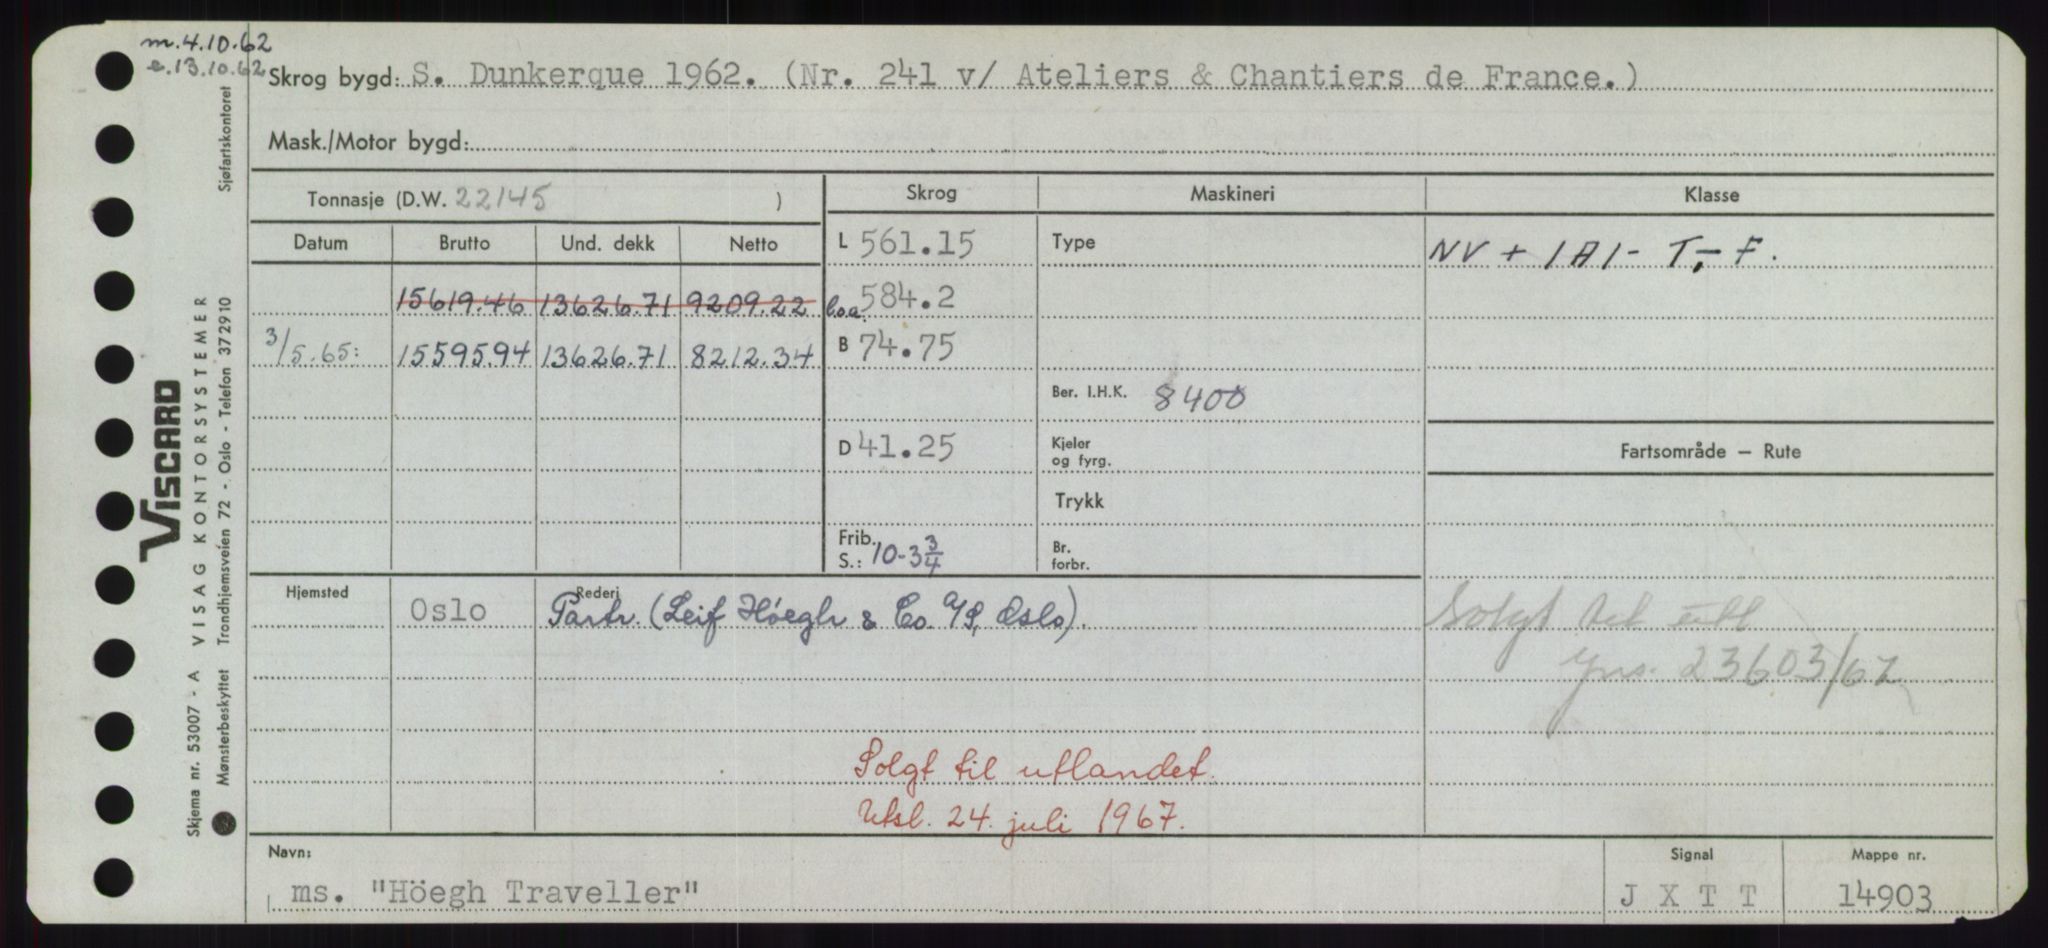 m. 4.10.62
e. 13.10.62
Skrog bygd: S. Dunkerque 1962. (Nr. 241 v/ Ateliers & Chantiers de France.)
Mask./Motor bygd:
Tonnasje (D.W. 22145 )
Skrog Maskineri Klasse
Datum Brutto Und. dekk Netto
L 561.15 Type NV + 1A1- T,- F.
15619.46 13626.71 9209.22 l.o.a. 584.2
3/5.65: 15595.94 13626.71 8212.34 B 74.75
Ber. I.H.K. 8400
D 41.25 Kjeler og fyrg.
Fartsområde – Rute
Trykk
Frib. S.: 10-3 3/4 Br. forbr.
Hjemsted Oslo Rederi Partr. (Leif Höegh & Co. A/S, Oslo).
Solgt til utl
23603/67
Solgt til utlandet.
Utsl. 24. juli 1967.
Navn: ms. "Höegh Traveller"
Signal J X T T
Mappe nr. 14903
VISCARD
VISAG KONTORSYSTEMER
Sjøfartskontoret
Trondhjemsveien 72 - Oslo - Telefon 372910
Skjema nr. 53007 - A
Mønsterbeskyttet